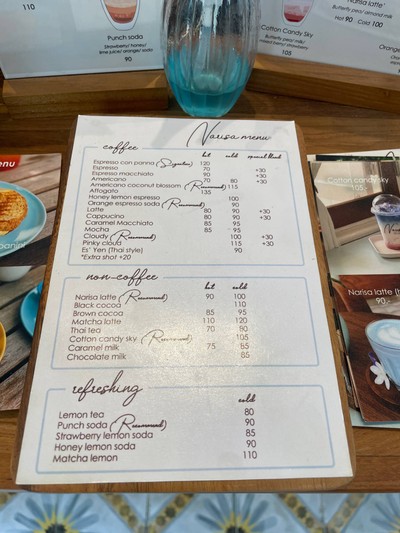 110
Punch soda
Strawberry/ honey/
lime juice/ orange/ soda
90
Narisa latte'
Butterfly pea/ almond milk
Hot 90 Cold 100
Cotton Candy Sky
Butterfly pea/ milk/
105
Narisa menu
coffee
hot cold special blend
Espresso con panna (Signature) 120
Espresso 70 +30
Espresso macchiato 90 +30
Americano 70 80 +30
Americano coconut blossom (Recommend) 115
Affogato 135
Honey lemon espresso 100
Orange espresso soda (Recommend) 90
Latte 80 90 +30
Cappucino 80 90 +30
Caramel Macchiato 85 95
Mocha 85 95
Cloudy (Recommend) 100 +30
Pinky cloud 115 +30
Es' Yen (Thai style) 90
*Extra shot +20
non-coffee
hot cold
Narisa latte (Recommend) 90 100
Black cocoa 110
Brown cocoa 85 95
Matcha latte 110 120
Thai tea 70 80
Cotton candy sky (Recommend) 105
Caramel milk 75 85
Chocolate milk 85
refreshing
cold
Lemon tea 80
Punch soda (Recommend) 90
Strawberry lemon soda 85
Honey lemon soda 90
Matcha lemon 110
menu
panini
Cotton candy sky
105
Narisa latte